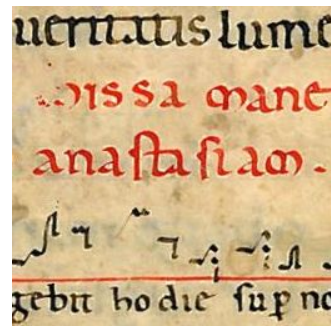 ueritatis lume
missa mane
anastasiam.
gebit hodie sup̱ no